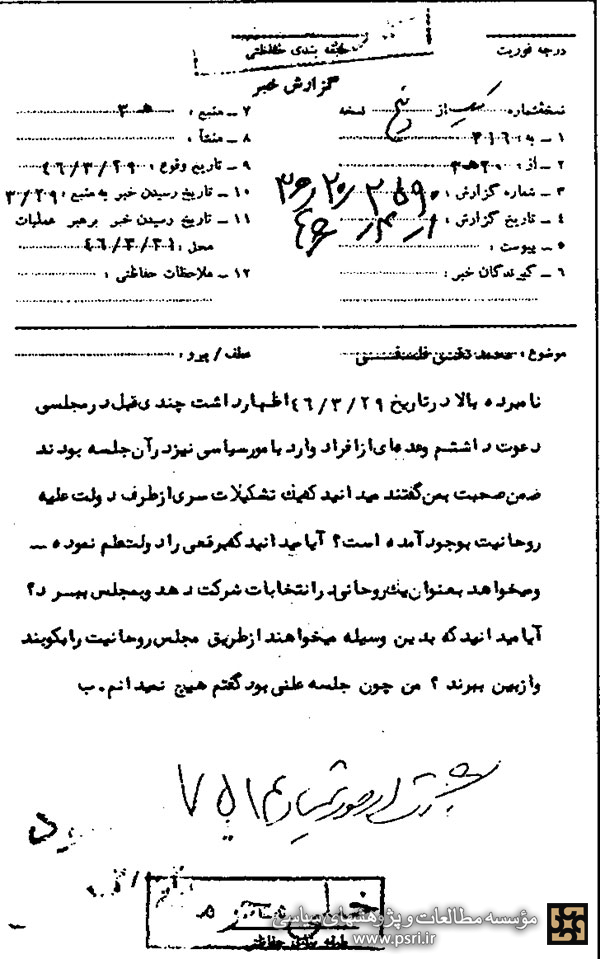 درجه فوریت
طبقه بندی حفاظتی
گزارش خبر
نسخه شماره یک از پنج نسخه
۱ ـ به: ۳۱۶
۲ ـ از: ۲۰ ه‍ ۳
۳ ـ شماره گزارش:
۴ ـ تاریخ گزارش:
۵ ـ پیوست:
۶ ـ گیرندگان خبر:
۷ ـ منبع:
۸ ـ منشأ:
۹ ـ تاریخ وقوع: ۴۶/۳/۲۹
۱۰ ـ تاریخ رسیدن خبر به منبع: ۳/۲۹
۱۱ ـ تاریخ رسیدن خبر برهبر عملیات
محل: ۴۶/۳/۳۱
۱۲ ـ ملاحظات حفاظتی:
موضوع: محمد تقی فلسفی
عطف / پیرو:
نامبرده بالا در تاریخ ۴۶/۳/۲۹ اظهار داشت چندی قبل در مجلسی
دعوت داشتم و عده‌ای از افراد وارد بامور سیاسی نیز در آن جلسه بودند
ضمن صحبت بمن گفتند میدانید که یک تشکیلات سری از طرف دولت علیه
روحانیت بوجود آمده است؟ آیا میدانید که برقعی را دولت علم نموده ــ
و میخواهد بعنوان یک روحانی در انتخابات شرکت دهد و بمجلس ببرد؟
آیا میدانید که بدین وسیله میخواهند از طریق مجلس روحانیت را بکوبند
و از بین ببرند؟ من چون جلسه علنی بود گفتم هیچ نمیدانم. ب
طبقه بندی حفاظتی
مؤسسه مطالعات و پژوهشهای سیاسی
www.psri.ir